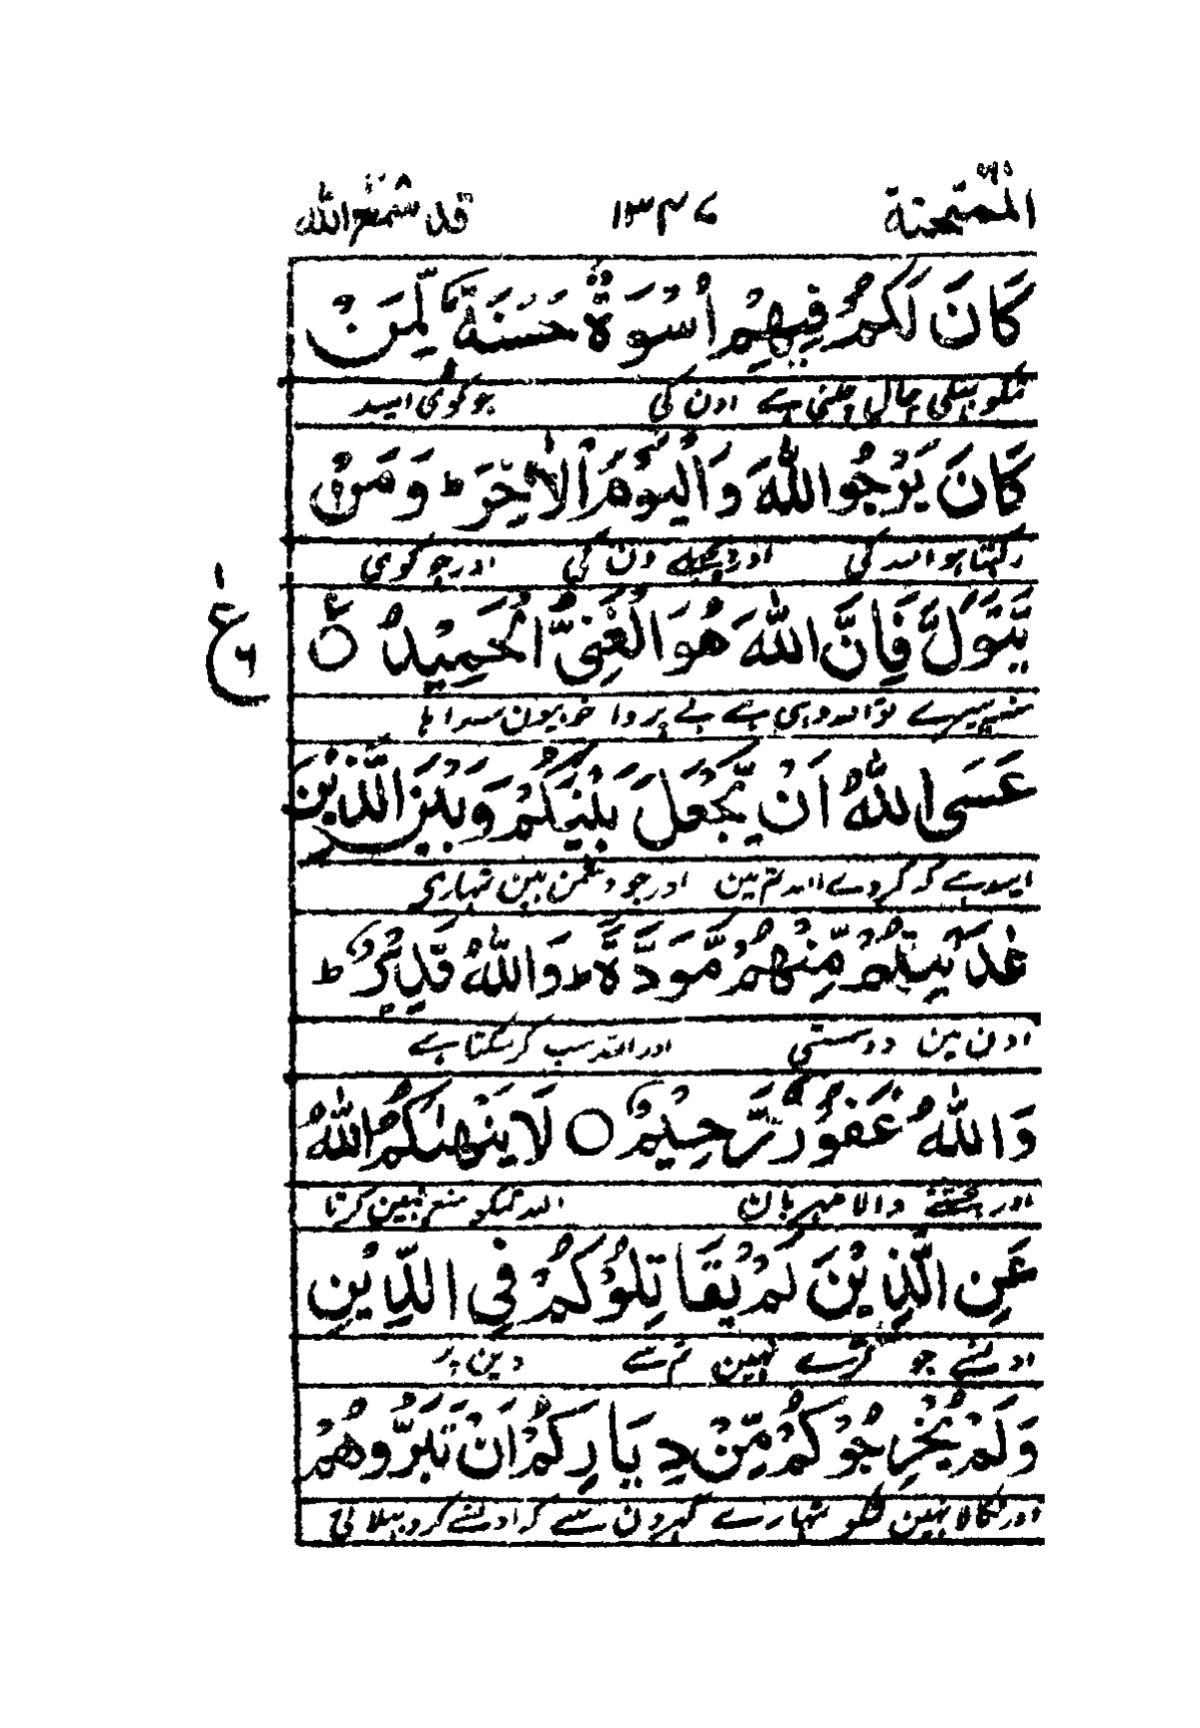 الممتحنة ٦٠ ١٣٤٧ قد سمع الله ٢٨
كَانَ لَكُمْ فِيهِمْ أُسْوَةٌ حَسَنَةٌ لِّمَنْ
تمکو بھلی چال چلنی ہے اون کی جو کوئی امید
كَانَ يَرْجُوا اللّٰهَ وَالْيَوْمَ الْاٰخِرَ ؕ وَمَنْ
رکھتا ہو اللہ کی اور پچھلے دن کی اور جو کوئی
يَّتَوَلَّ فَاِنَّ اللّٰهَ هُوَ الْغَنِىُّ الْحَمِيْدُ ○ ع
ع ٦
منہ پھیرے تو اللہ وہی ہے بے پروا خوبیون سراہا
عَسَى اللّٰهُ اَنْ يَّجْعَلَ بَيْنَكُمْ وَبَيْنَ الَّذِيْنَ
امید ہے کہ کردے اللہ تم مین اور جو دشمن ہین تمہاری
عَادَيْتُمْ مِّنْهُمْ مَّوَدَّةً ؕ وَاللّٰهُ قَدِيْرٌ ؕ
اون مین دوستی اور اللہ سب کرسکتا ہے
وَاللّٰهُ غَفُوْرٌ رَّحِيْمٌ ○ لَا يَنْهٰىكُمُ اللّٰهُ
اور بخشنے والا مہربان اللہ تمکو منع نہین کرتا
عَنِ الَّذِيْنَ لَمْ يُقَاتِلُوْكُمْ فِى الدِّيْنِ
اونسے جو لڑے نہین تم سے دین پر
وَلَمْ يُخْرِجُوْكُمْ مِّنْ دِيَارِكُمْ اَنْ تَبَرُّوْهُمْ
اور نکالا نہین تمکو تمہارے گھرون سے کہ اونسے کرو بھلائی